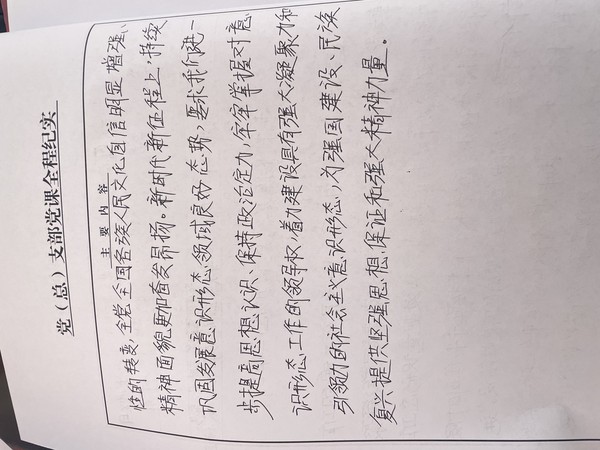 党（总）支部党课全程纪实
主要内容
性的转变，全党全国各族人民文化自信明显增强、
精神面貌更加奋发昂扬。新时代新征程上，持续
巩固发展意识形态领域良好态势，要求我们进一
步提高思想认识、保持政治定力，牢牢掌握对意
识形态工作的领导权，着力建设具有强大凝聚力和
引领力的社会主义意识形态，为强国建设、民族
复兴提供坚强思想保证和强大精神力量。